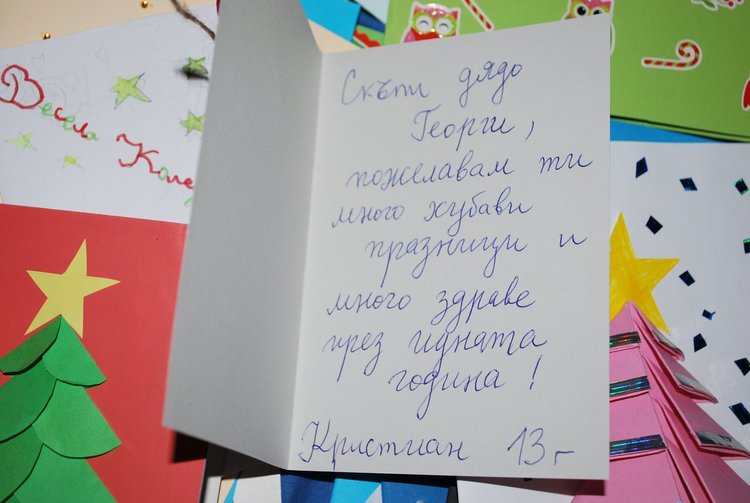 Весела Коле
Скъпи дядо
Георги,
пожелавам ти
много хубави
празници и
много здраве
през идната
година!
Кристиан 13 г